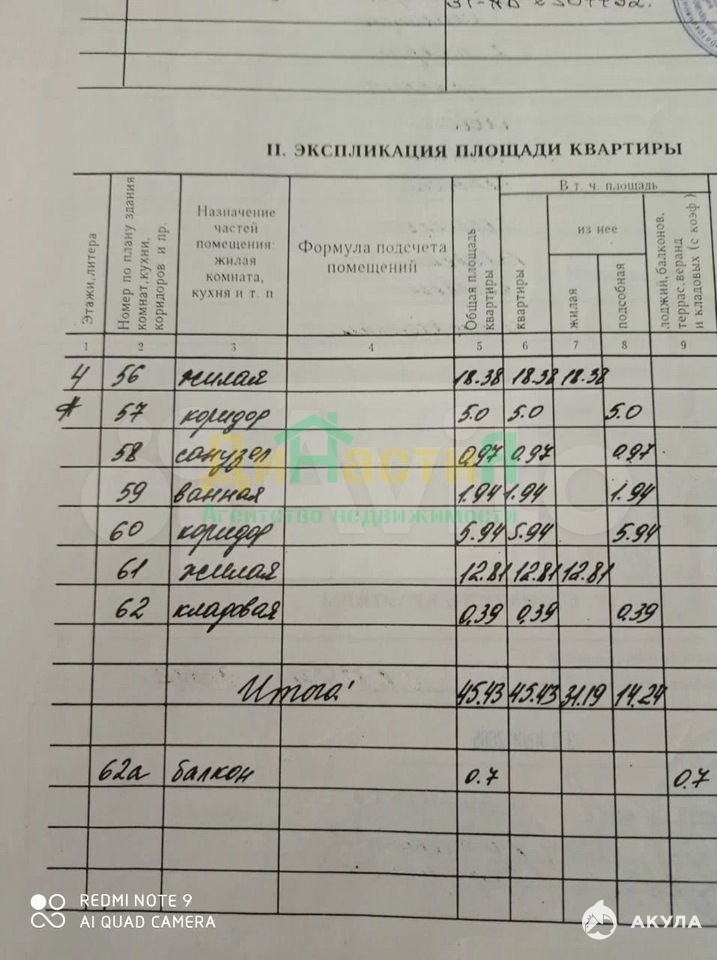 II. ЭКСПЛИКАЦИЯ ПЛОЩАДИ КВАРТИРЫ
Этажи, литера
Номер по плану здания комнат, кухни, коридоров и пр.
Назначение частей помещения: жилая комната, кухня и т. п
Формула подсчета помещений
Общая площадь квартиры
В т. ч. площадь
квартиры
из нее
жилая
подсобная
лоджий, балконов, террас, веранд и кладовых (с коэф)
1 2 3 4 5 6 7 8 9
4 56 жилая 18.38 18.38 18.38
57 коридор 5.0 5.0 5.0
58 санузел 0,97 0,97 0,97
59 ванная 1.94 1.94 1.94
60 коридор 5.94 5.94 5.94
61 жилая 12.81 12.81 12.81
62 кладовая 0,39 0,39 0,39
Итого: 45.43 45.43 31.19 14.24
62а балкон 0.7 0.7
ДиНастиЯ
Агентство недвижимости
Avito
REDMI NOTE 9
AI QUAD CAMERA
АКУЛА